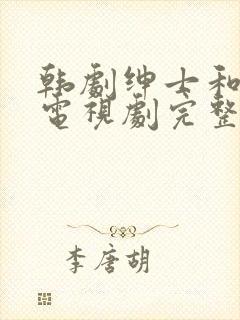 韩劇绅士和
電視劇完整
李唐胡